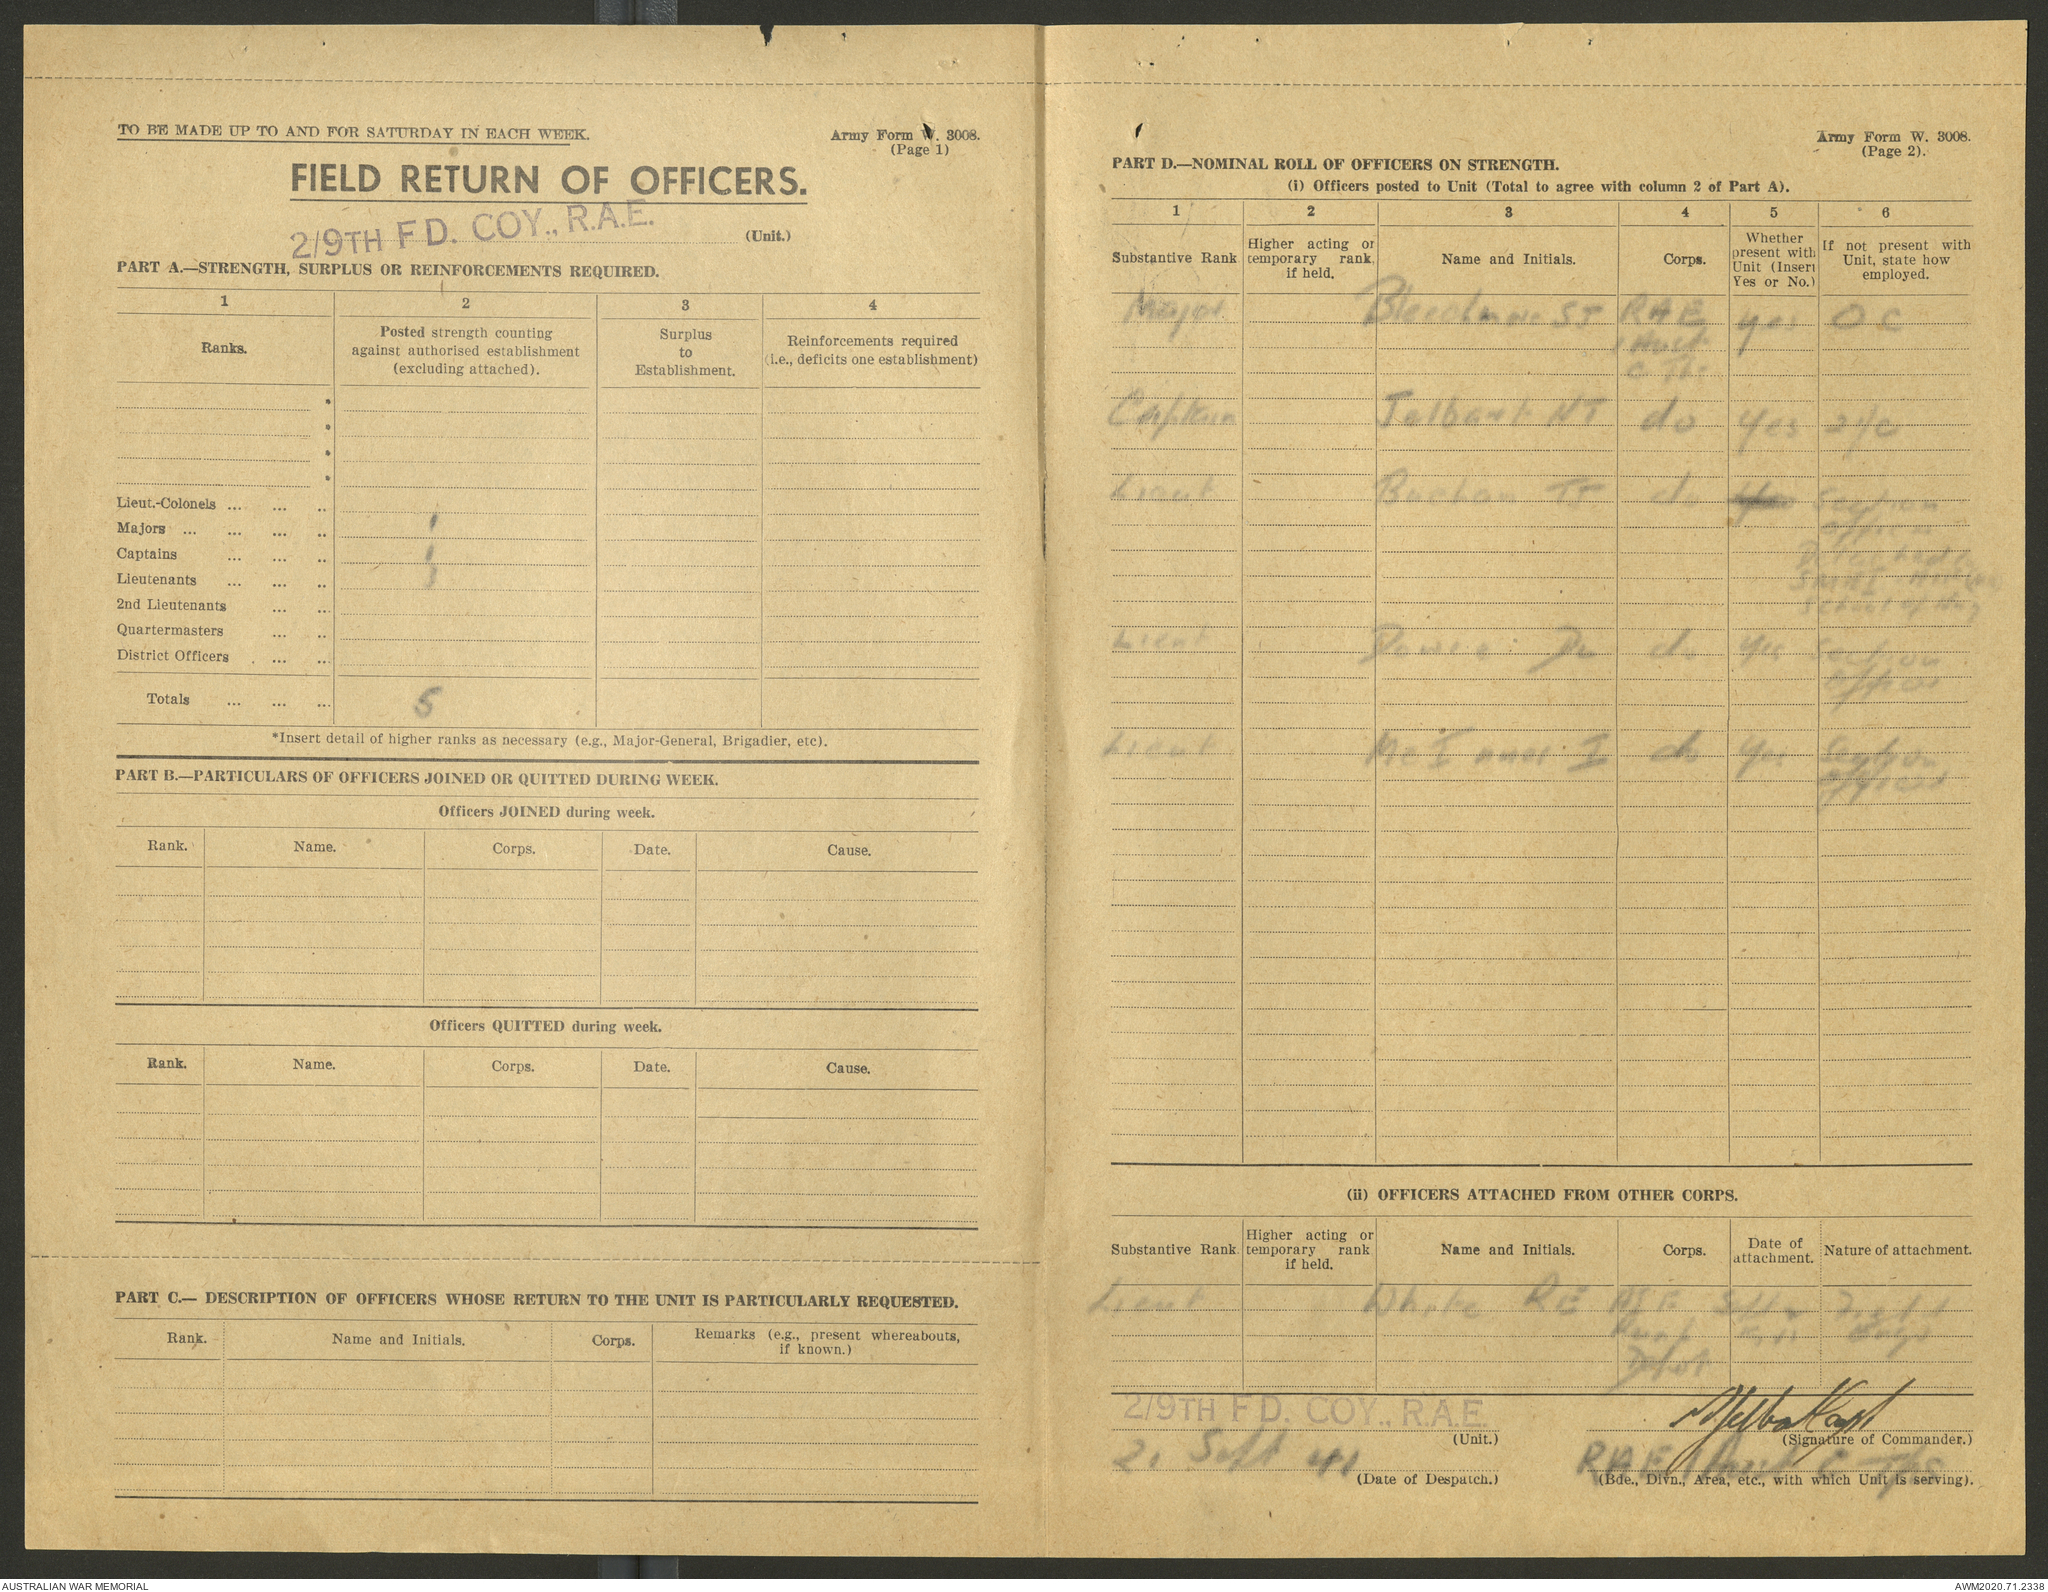 TO BE MADE UP TO AND FOR SATURDAY IN EACH WEEK.
Army Form W. 3008.
(Page 1)
FIELD RETURN OF OFFICERS.
2/9TH FD. COY., R.A.E.
(Unit.)
PART A.—STRENGTH, SURPLUS OR REINFORCEMENTS REQUIRED.
1 2 3 4
Ranks.
Posted strength counting
against authorised establishment
(excluding attached).
Surplus
to
Establishment.
Reinforcements required
(i.e., deficits one establishment)
*
*
*
*
Lieut.-Colonels ... ... ..
Majors ... ... ... .. 1
Captains ... ... .. 1
Lieutenants ... ... .. 3
2nd Lieutenants ... ..
Quartermasters ... ..
District Officers . ... ...
Totals ... ... ... 5
*Insert detail of higher ranks as necessary (e.g., Major-General, Brigadier, etc).
PART B.—PARTICULARS OF OFFICERS JOINED OR QUITTED DURING WEEK.
Officers JOINED during week.
Rank. Name. Corps. Date. Cause.
Officers QUITTED during week.
Rank. Name. Corps. Date. Cause.
PART C.— DESCRIPTION OF OFFICERS WHOSE RETURN TO THE UNIT IS PARTICULARLY REQUESTED.
Rank. Name and Initials. Corps.
Remarks (e.g., present whereabouts,
if known.)
Army Form W. 3008.
(Page 2).
PART D.—NOMINAL ROLL OF OFFICERS ON STRENGTH.
(i) Officers posted to Unit (Total to agree with column 2 of Part A).
1 2 3 4 5 6
Substantive Rank.
Higher acting or
temporary rank,
if held.
Name and Initials.
Corps.
Whether
present with
Unit (Insert
Yes or No.)
If not present with
Unit, state how
employed.
Major Bleechmore SJ RAE yes OC
1 Aust
C Tps
Captain Jelbart NT do Yes 2i/c
Lieut Buchan TJ do Section
Officer
Detached
Lieut do Yes Section
Officer
Lieut McInnes I do Yes Section
Officer
(ii) OFFICERS ATTACHED FROM OTHER CORPS.
Substantive Rank.
Higher acting or
temporary rank
if held.
Name and Initials.
Corps.
Date of
attachment.
Nature of attachment.
Lieut White RE
2/9TH FD. COY., R.A.E.
(Unit.)
NJelbart Capt
(Signature of Commander.)
21 Sept 41
(Date of Despatch.)
RAE 1 Aust C Tps
(Bde., Divn., Area, etc., with which Unit is serving).
AUSTRALIAN WAR MEMORIAL
AWM2020.71.2338